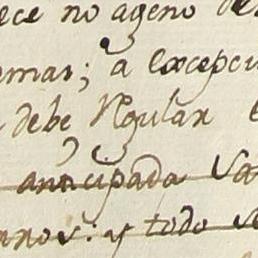 ece no ageno de
emas; a excepci
debe Regular
anticipada
nnos: y todo